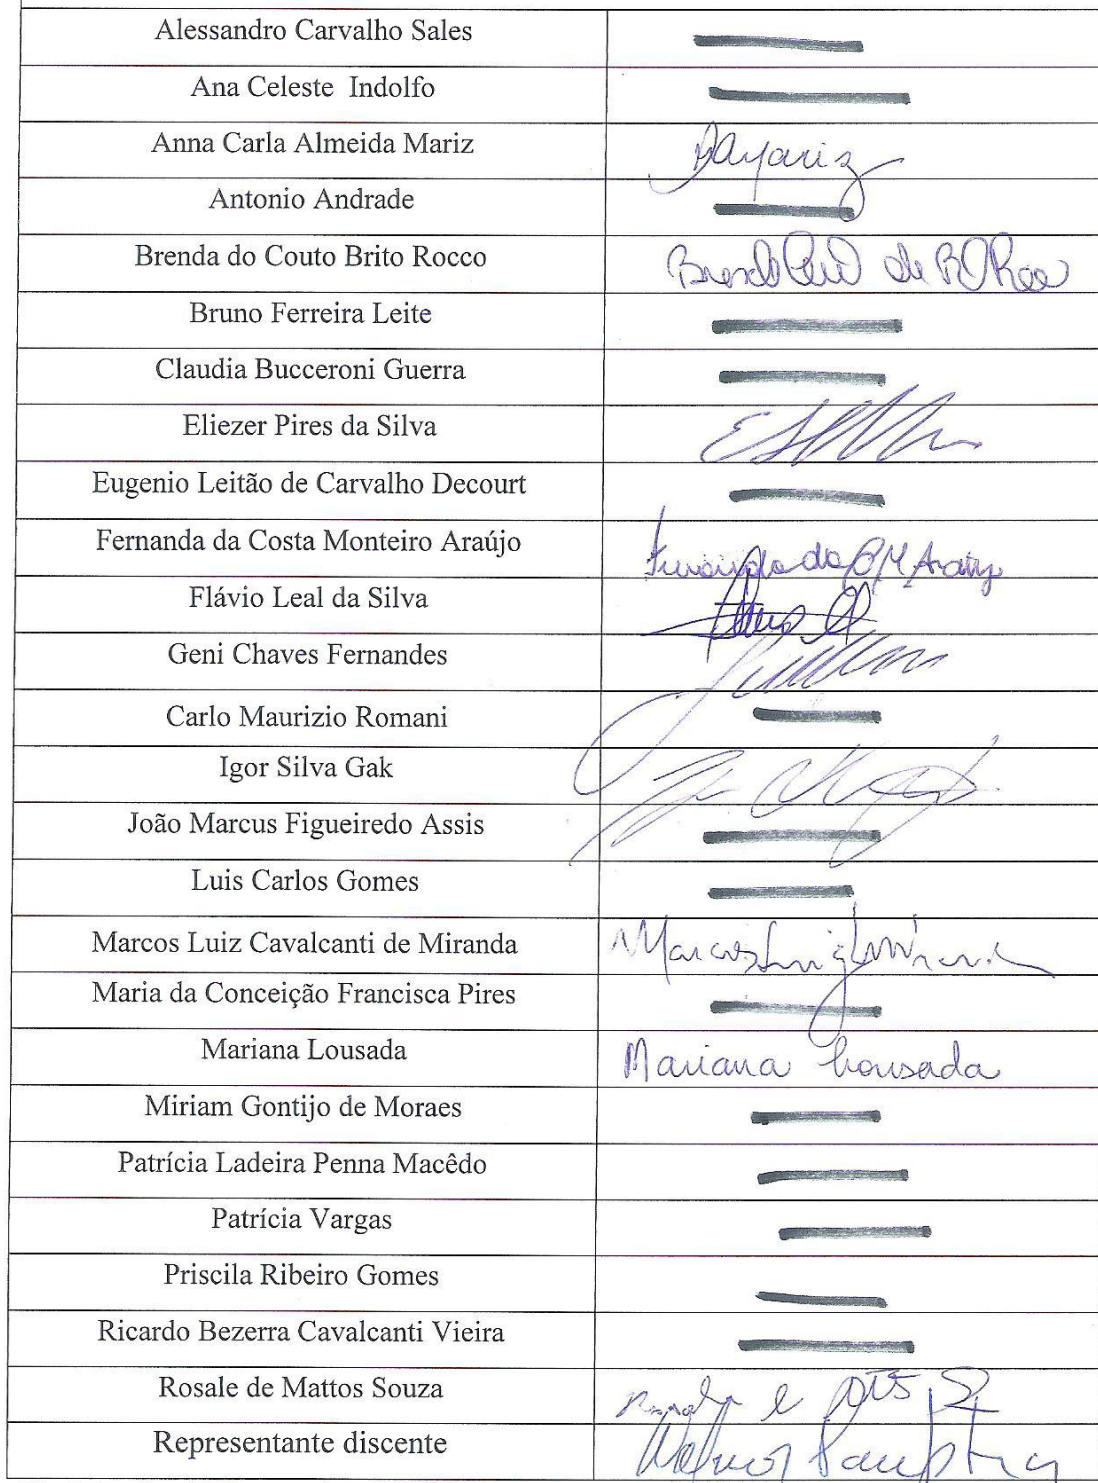 Alessandro Carvalho Sales
Ana Celeste Indolfo
Anna Carla Almeida Mariz
Antonio Andrade
Brenda do Couto Brito Rocco
Bruno Ferreira Leite
Claudia Bucceroni Guerra
Eliezer Pires da Silva
Eugenio Leitão de Carvalho Decourt
Fernanda da Costa Monteiro Araújo
Flávio Leal da Silva
Geni Chaves Fernandes
Carlo Maurizio Romani
Igor Silva Gak
João Marcus Figueiredo Assis
Luis Carlos Gomes
Marcos Luiz Cavalcanti de Miranda
Maria da Conceição Francisca Pires
Mariana Lousada Mariana Lousada
Miriam Gontijo de Moraes
Patrícia Ladeira Penna Macêdo
Patrícia Vargas
Priscila Ribeiro Gomes
Ricardo Bezerra Cavalcanti Vieira
Rosale de Mattos Souza
Representante discente